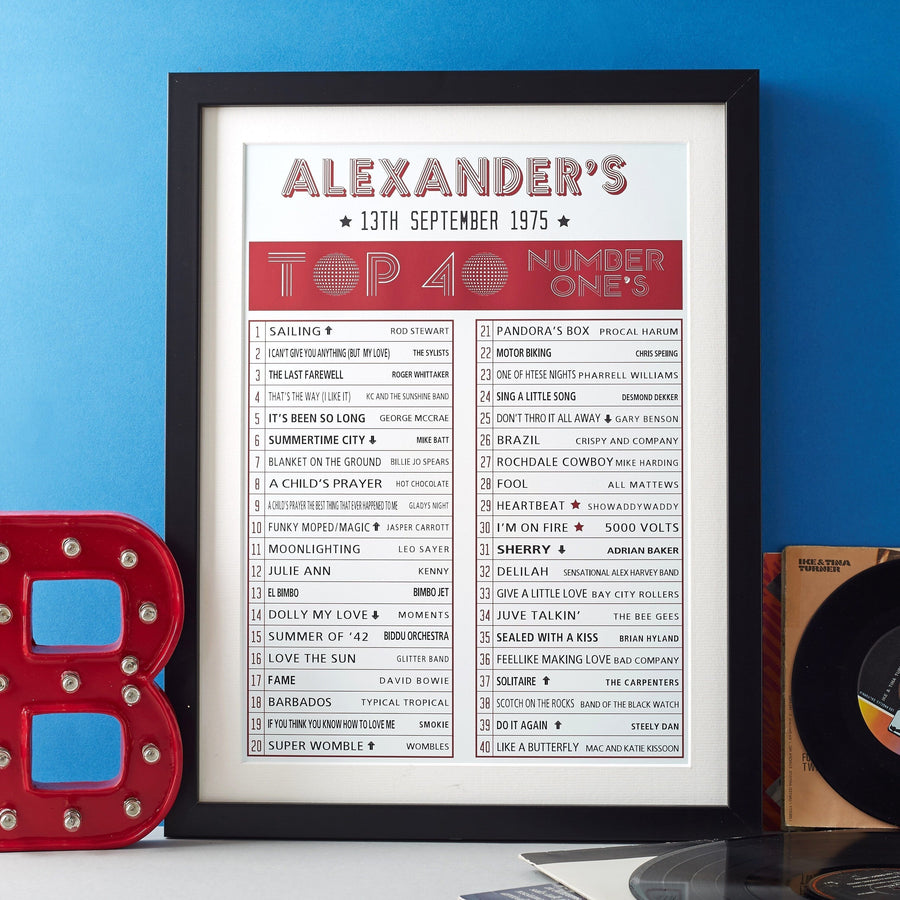 ALEXANDER'S
★ 13TH SEPTEMBER 1975 ★
TOP 40 NUMBER ONE'S
1 SAILING ⬆ ROD STEWART
2 I CAN'T GIVE YOU ANYTHING (BUT MY LOVE) THE SYLISTS
3 THE LAST FAREWELL ROGER WHITTAKER
4 THAT'S THE WAY (I LIKE IT) KC AND THE SUNSHINE BAND
5 IT'S BEEN SO LONG GEORGE MCCRAE
6 SUMMERTIME CITY ⬇ MIKE BATT
7 BLANKET ON THE GROUND BILLIE JO SPEARS
8 A CHILD'S PRAYER HOT CHOCOLATE
9 A CHILD'S PRAYER THE BEST THING THAT EVER HAPPENED TO ME GLADYS NIGHT
10 FUNKY MOPED/MAGIC ⬆ JASPER CARROTT
11 MOONLIGHTING LEO SAYER
12 JULIE ANN KENNY
13 EL BIMBO BIMBO JET
14 DOLLY MY LOVE ⬇ MOMENTS
15 SUMMER OF '42 BIDDU ORCHESTRA
16 LOVE THE SUN GLITTER BAND
17 FAME DAVID BOWIE
18 BARBADOS TYPICAL TROPICAL
19 IF YOU THINK YOU KNOW HOW TO LOVE ME SMOKIE
20 SUPER WOMBLE ⬆ WOMBLES
21 PANDORA'S BOX PROCAL HARUM
22 MOTOR BIKING CHRIS SPEIING
23 ONE OF HTESE NIGHTS PHARRELL WILLIAMS
24 SING A LITTLE SONG DESMOND DEKKER
25 DON'T THRO IT ALL AWAY ⬇ GARY BENSON
26 BRAZIL CRISPY AND COMPANY
27 ROCHDALE COWBOY MIKE HARDING
28 FOOL ALL MATTEWS
29 HEARTBEAT ★ SHOWADDYWADDY
30 I'M ON FIRE ★ 5000 VOLTS
31 SHERRY ⬇ ADRIAN BAKER
32 DELILAH SENSATIONAL ALEX HARVEY BAND
33 GIVE A LITTLE LOVE BAY CITY ROLLERS
34 JUVE TALKIN' THE BEE GEES
35 SEALED WITH A KISS BRIAN HYLAND
36 FEELLIKE MAKING LOVE BAD COMPANY
37 SOLITAIRE ⬆ THE CARPENTERS
38 SCOTCH ON THE ROCKS BAND OF THE BLACK WATCH
39 DO IT AGAIN ⬆ STEELY DAN
40 LIKE A BUTTERFLY MAC AND KATIE KISSOON
B
IKE & TINA
TURNER